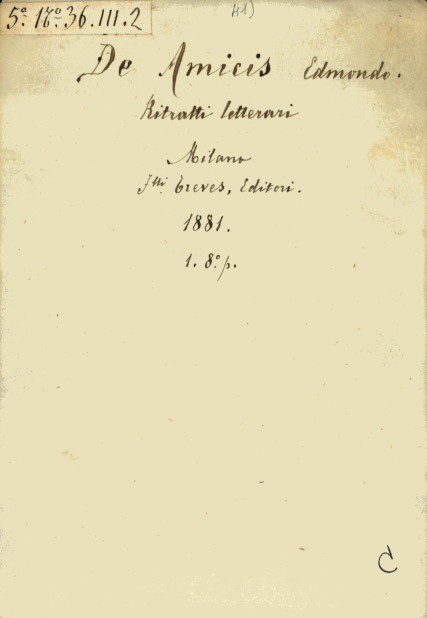 5º. 17º. 36. III. 2
41)
De Amicis Edmondo.
Ritratti letterari
Milano
Flli Treves, Editori.
1881.
1. 8.º p.
C